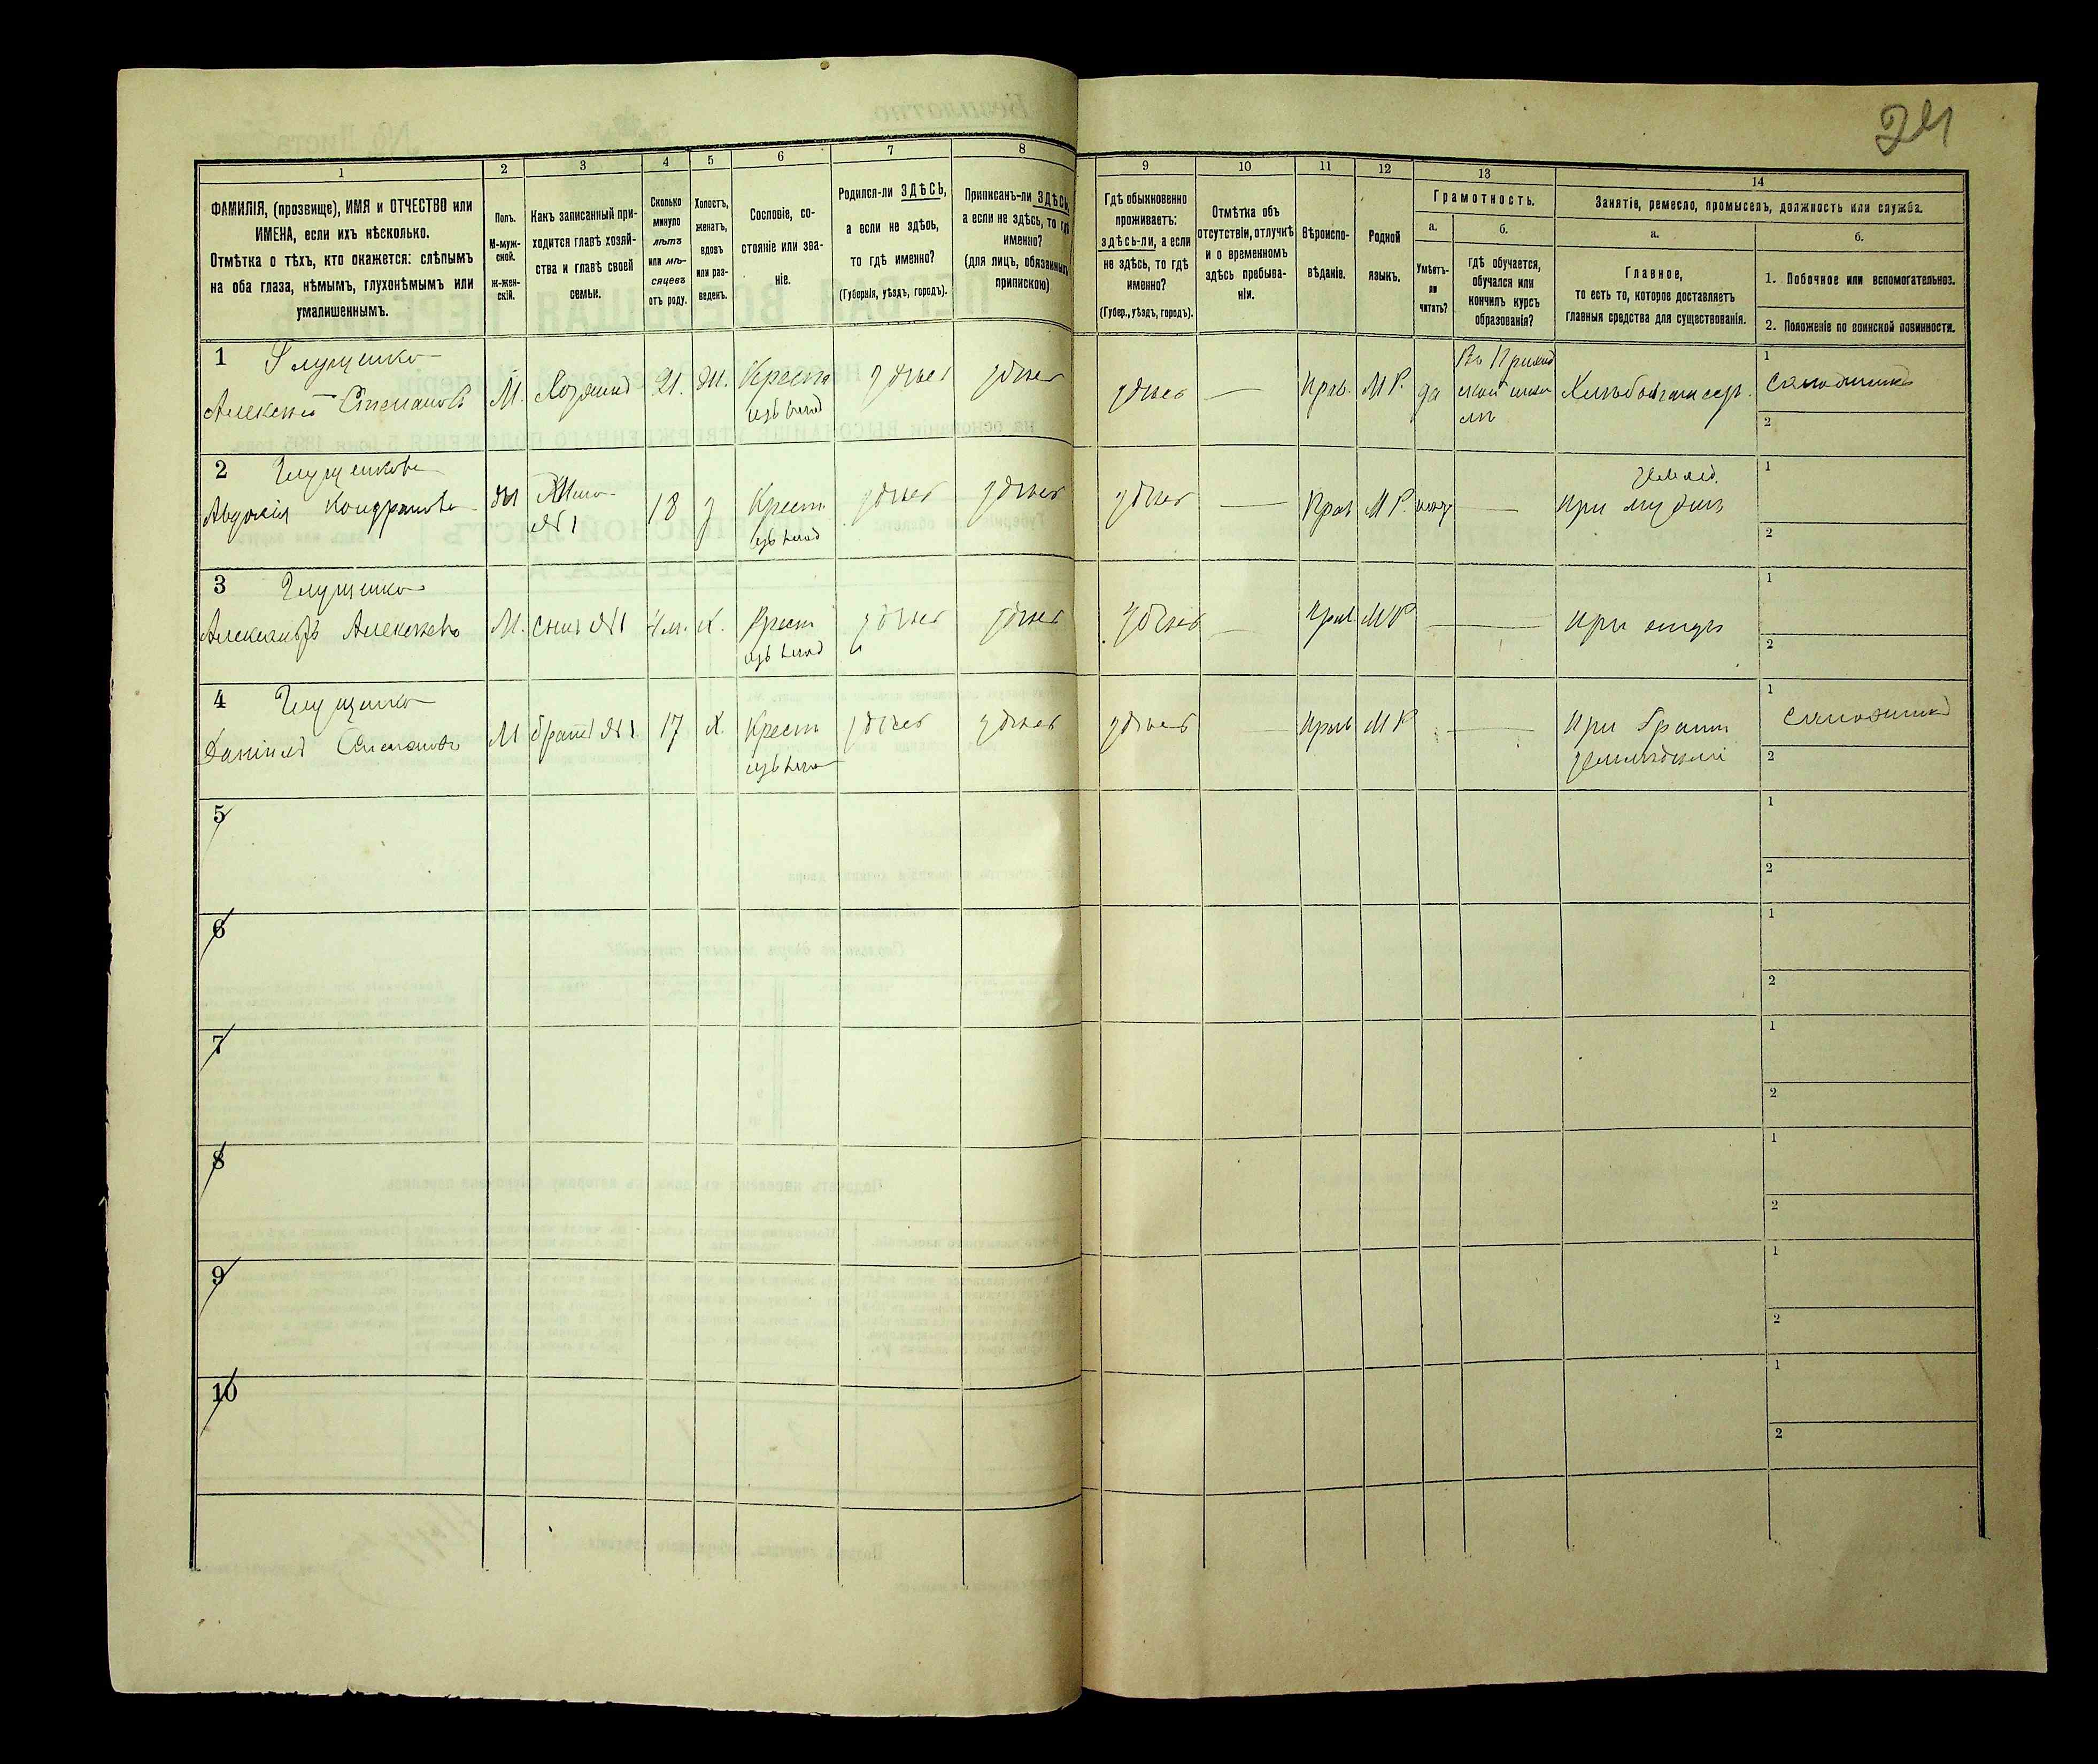 24
1
2
3
4
5
6
7
8
9
10
11
12
13
14
ФАМИЛІЯ, (прозвище), ИМЯ и ОТЧЕСТВО или
ИМЕНА, если ихъ нѣсколько.
Отмѣтка о тѣхъ, кто окажется: слѣпымъ
на оба глаза, нѣмымъ, глухонѣмымъ или
умалишеннымъ.
Полъ.
М-муж-
ской.
ж-жен-
скій.
Какъ записанный при-
ходится главѣ хозяй-
ства и главѣ своей
семьи.
Сколько
минуло
лѣтъ
или мѣ-
сяцевъ
отъ роду.
Холостъ,
женатъ,
вдовъ
или раз-
веденъ.
Сословіе, со-
стояніе или зва-
ніе.
Родился-ли ЗДѢСЬ,
а если не здѣсь,
то гдѣ именно?
(Губернія, уѣздъ, городъ).
Приписанъ-ли ЗДѢСЬ,
а если не здѣсь, то гдѣ
именно?
(для лицъ, обязанныхъ
припискою)
Гдѣ обыкновенно
проживаетъ:
здѣсь-ли, а если
не здѣсь, то гдѣ
именно?
(Губер., уѣздъ, городъ).
Отмѣтка объ
отсутствіи, отлучкѣ
и о временномъ
здѣсь пребыва-
ніи.
Вѣроиспо-
вѣданіе.
Родной
языкъ.
Грамотность.
а.
Умѣетъ-
ли
читать?
б.
гдѣ обучается,
обучался или
кончилъ курсъ
образованія?
Занятіе, ремесло, промыселъ, должность или служба.
а.
Главное,
то есть то, которое доставляетъ
главныя средства для существованія.
б.
1. Побочное или вспомогательное.
2. Положеніе по воинской повинности.
1 Глущенко
Алексѣй Степановъ
М.
Хозяинъ
21.
Ж.
Крест
изъ влад
здѣсь
здѣсь
здѣсь
—
Прав.
МР.
да
школѣ
1
2
2 Глущенкова
Авдокія Кондратова
Ж
Жена
№1
18
З
Крест
изъ влад
здѣсь
здѣсь
здѣсь
—
Прав
МР.
—
землед.
При мужѣ
1
2
3 Глущенко
Александръ Алексѣевъ
М.
сынъ №1
4 м.
Х.
Крест
изъ влад
здѣсь
здѣсь
здѣсь
—
Прав
МР
—
При отцѣ
1
2
4 Глущенко
Даніилъ Степановъ
М
братъ №1
17
Х.
Крест
изъ влад
здѣсь
здѣсь
здѣсь
—
Прав
МР
—
При братѣ
1
2
5
1
2
6
1
2
7
1
2
8
1
2
9
1
2
10
1
2